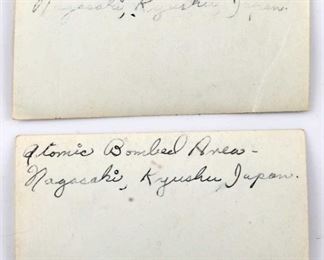 Nagasaki, Kyushu, Japan.
Atomic Bombed Area -
Nagasaki, Kyushu, Japan.